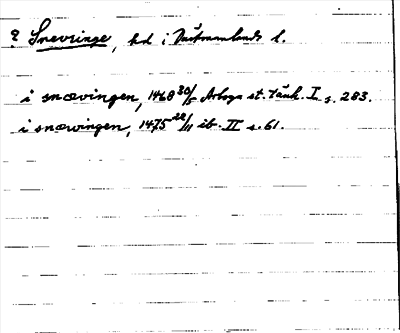 ? Snevringe, hd i Västmanlands l.
i snævingen, 1468 30/5 Arboga st. tänk. I s. 283.
i snæwingen, 1475 22/11 ib. II s. 61.